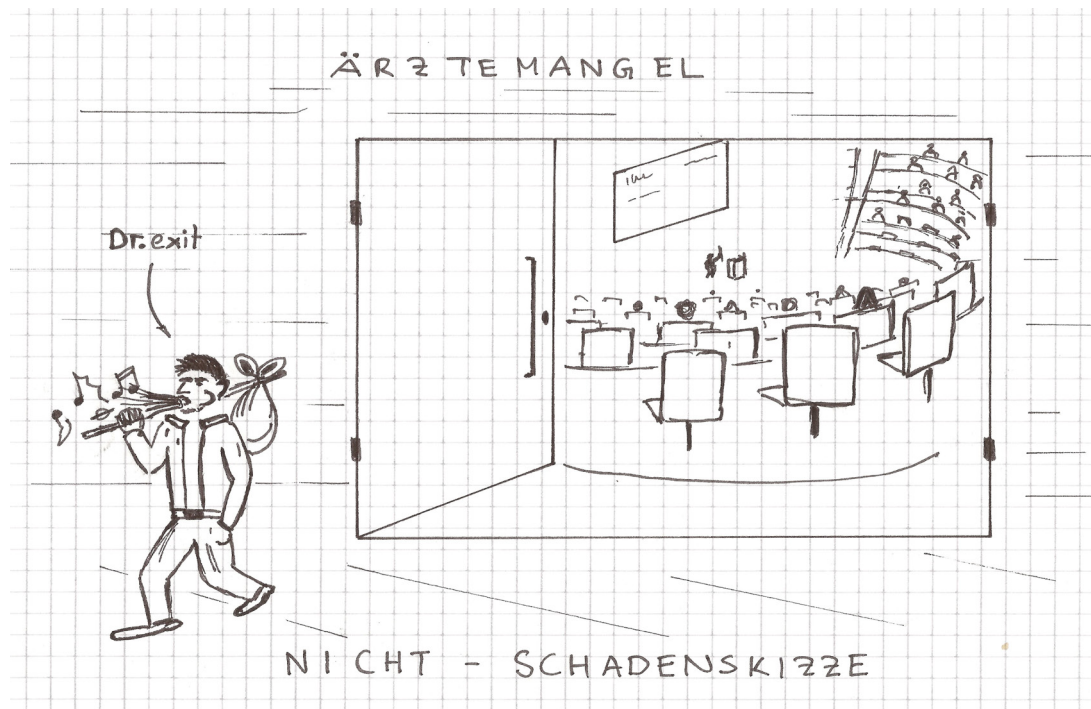 ÄRZTEMANGEL
Dr. exit
NICHT - SCHADENSKIZZE